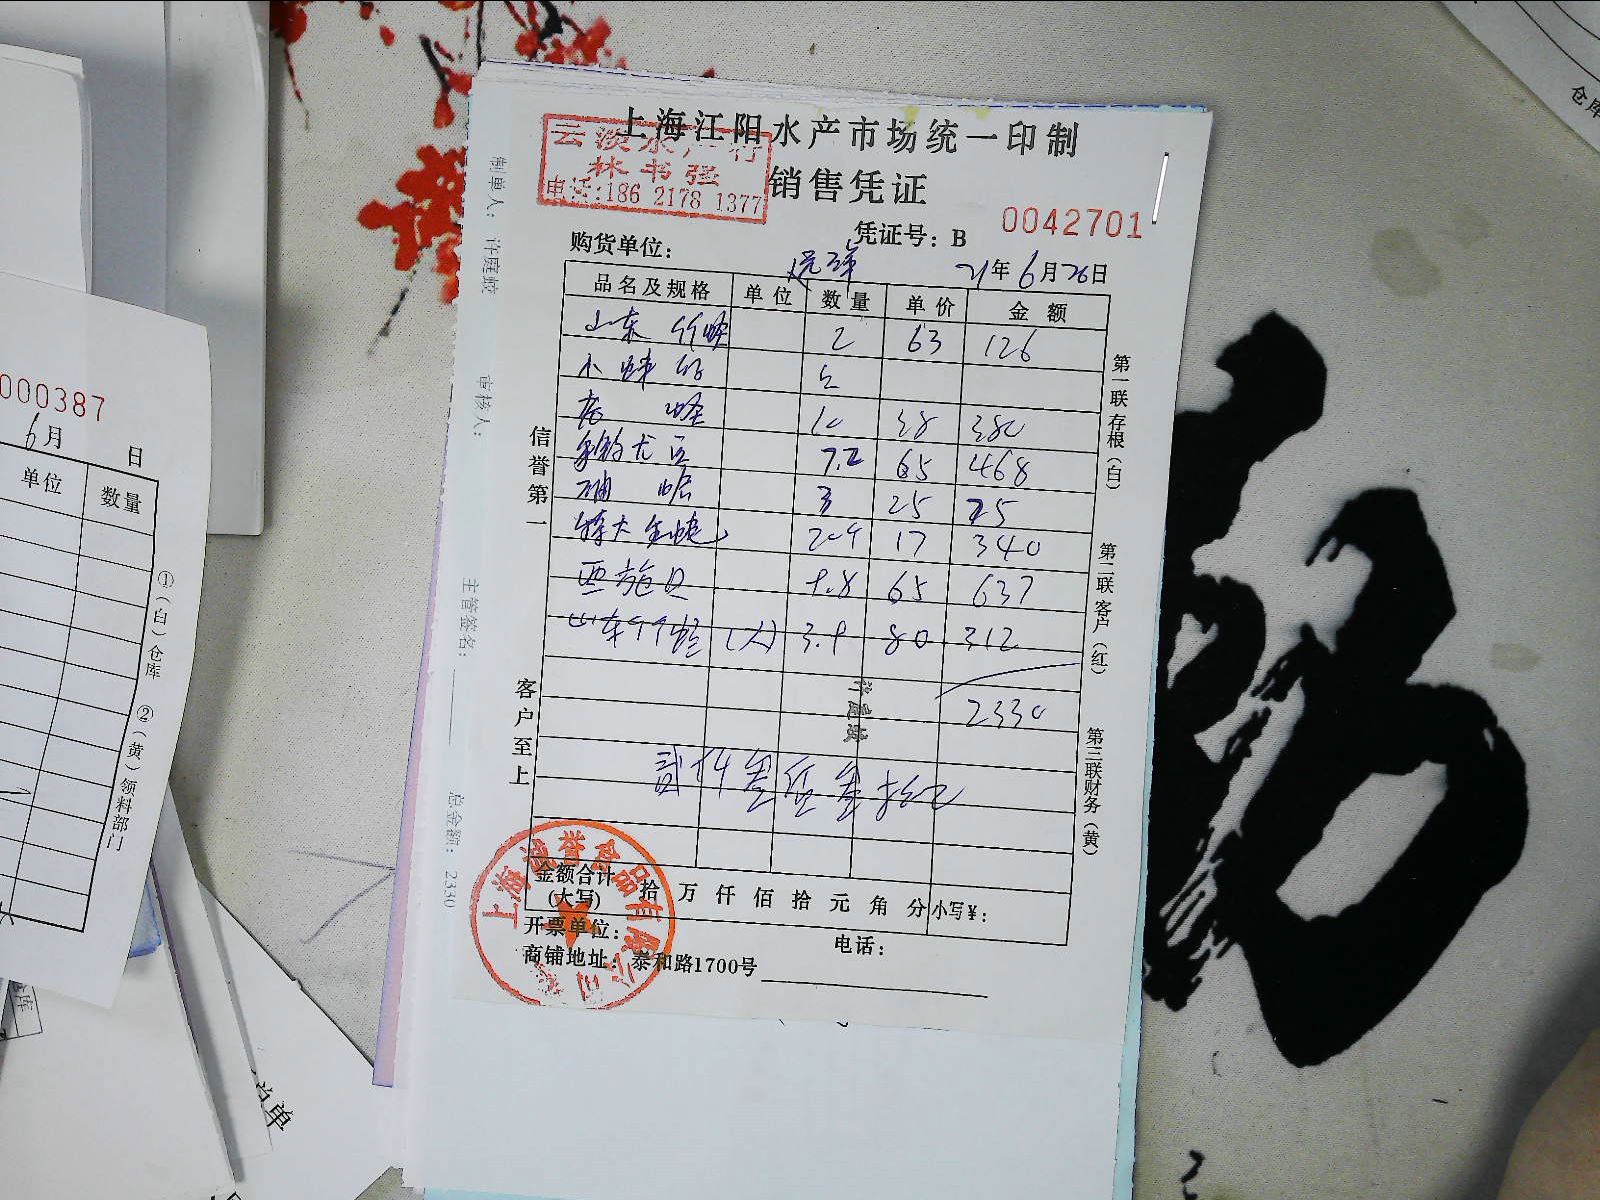 上海江阳水产市场统一印制
云淡水产行
林书强
电话:186 2178 1377
销售凭证
凭证号: B 0042701
购货单位:
21年6月26日
品名及规格 单位 数量 单价 金额
山东竹蛏 2 63 126
小 5
10 38 380
7.2 65 468
3 25 75
特大 20.4 17 340
西施贝 9.8 65 637
山东竹蛏 (大) 3.9 80 312
2330
贰仟叁佰叁拾元
金额合计
(大写) 拾 万 仟 佰 拾 元 角 分 小写¥:
开票单位: 电话:
商铺地址: 泰和路1700号
信誉第一
客户至上
第一联存根(白)
第二联客户(红)
第三联财务(黄)
上海诚誉食品有限公司
制单人: 许庭蛟
审核人:
主管签名:
总金额: 2330
000387
6月 日
单位 数量
①(白)仓库 ②(黄)领料部门
仓库
单